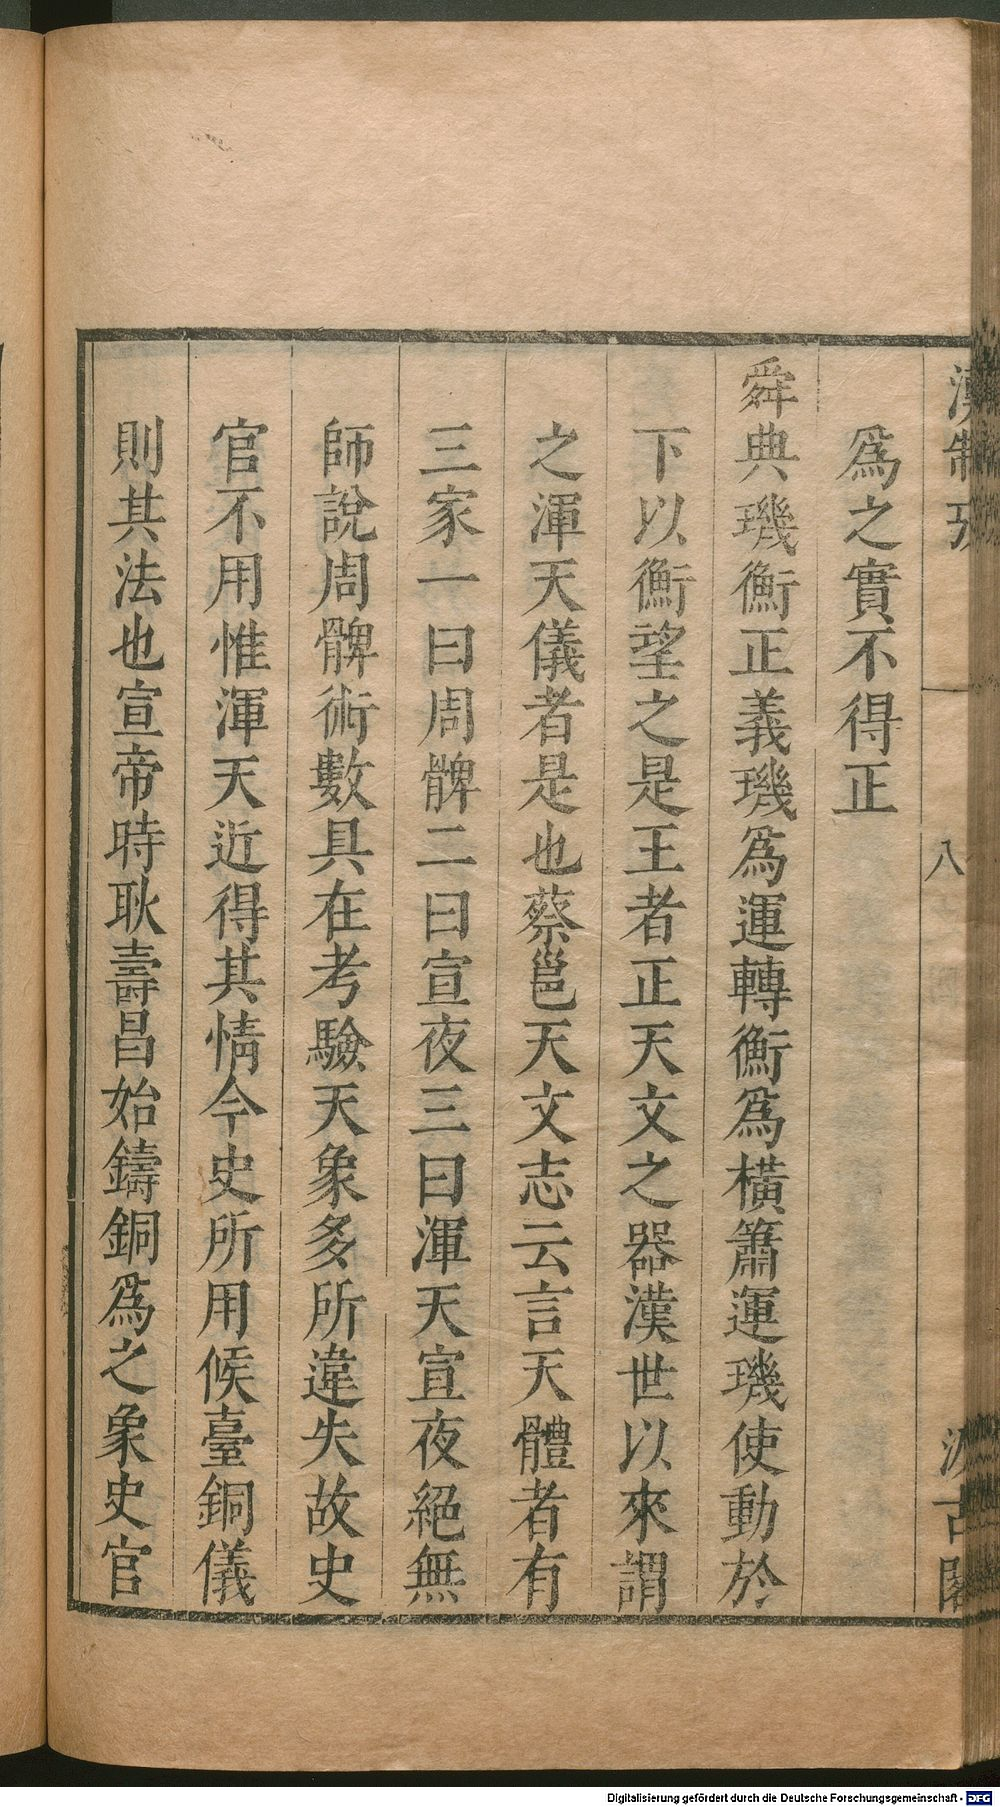 漢制攷
八
汲古閣
爲之實不得正
舜典璣衡正義璣爲運轉衡爲橫簫運璣使動於
下以衡望之是王者正天文之器漢世以來謂
之渾天儀者是也蔡邕天文志云言天體者有
三家一曰周髀二曰宣夜三曰渾天宣夜絕無
師說周髀術數具在考驗天象多所違失故史
官不用惟渾天近得其情今史所用候臺銅儀
則其法也宣帝時耿壽昌始鑄銅爲之象史官
Digitalisierung gefördert durch die Deutsche Forschungsgemeinschaft - DFG